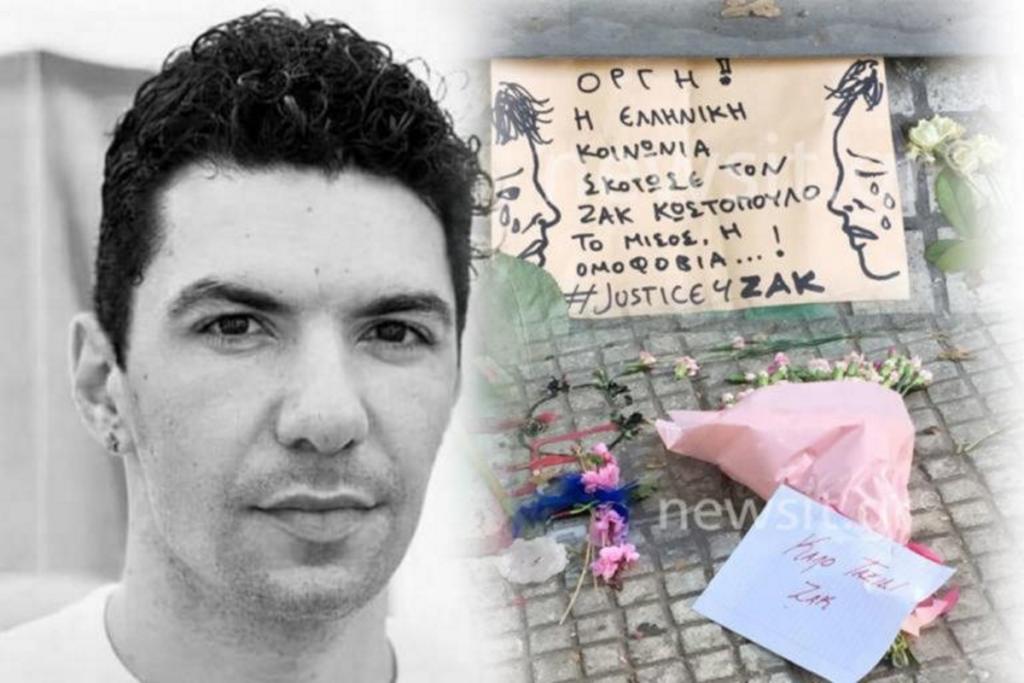 ΟΡΓΗ!
Η ΕΛΛΗΝΙΚΗ
ΚΟΙΝΩΝΙΑ
ΣΚΟΤΩΣΕ ΤΟΝ
ΖΑΚ ΚΩΣΤΟΠΟΥΛΟ
ΤΟ ΜΙΣΟΣ, Η
ΟΜΟΦΟΒΙΑ...!
#JUSTICE4ZAK
newsit
newsit.gr
ΚΑΛΟ ΤΑΞΙΔΙ
ΖΑΚ